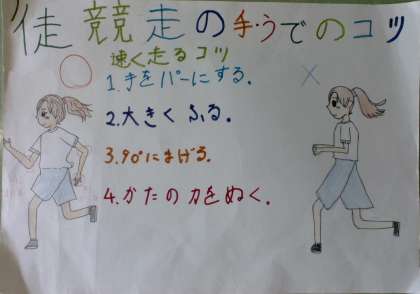 徒競走の手・うでのコツ
速く走るコツ
1.手をパーにする。
2.大きくふる。
3.90°にまげる。
4.かたの力をぬく。